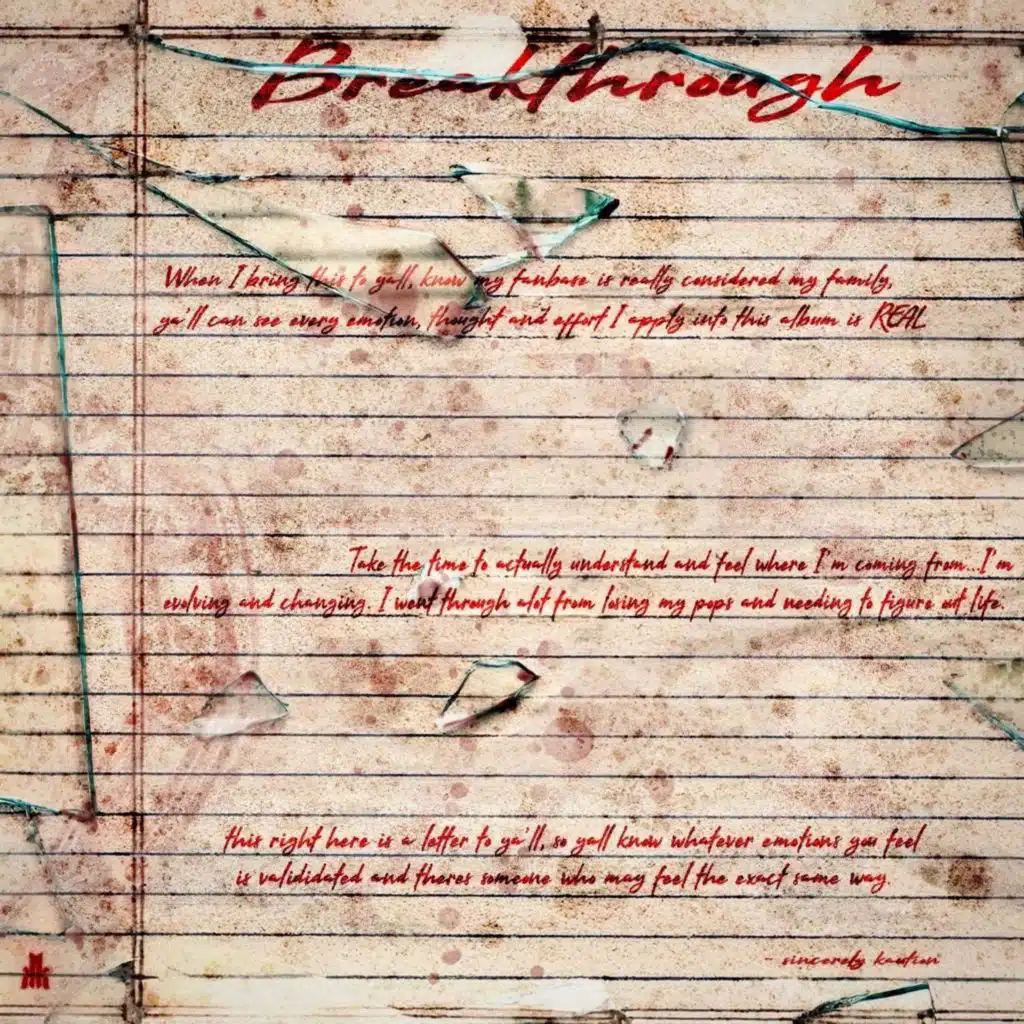 Breakthrough
When I bring this to yall, know my fanbase is really considered my family,
ya'll can see every emotion, thought and effort I apply into this album is REAL
Take the time to actually understand and feel where I'm coming from...I'm
evolving and changing. I went through alot from losing my pops and needing to figure out life.
this right here is a letter to ya'll, so yall know whatever emotions you feel
is valididated and theres someone who may feel the exact same way.
- sincerely kaution